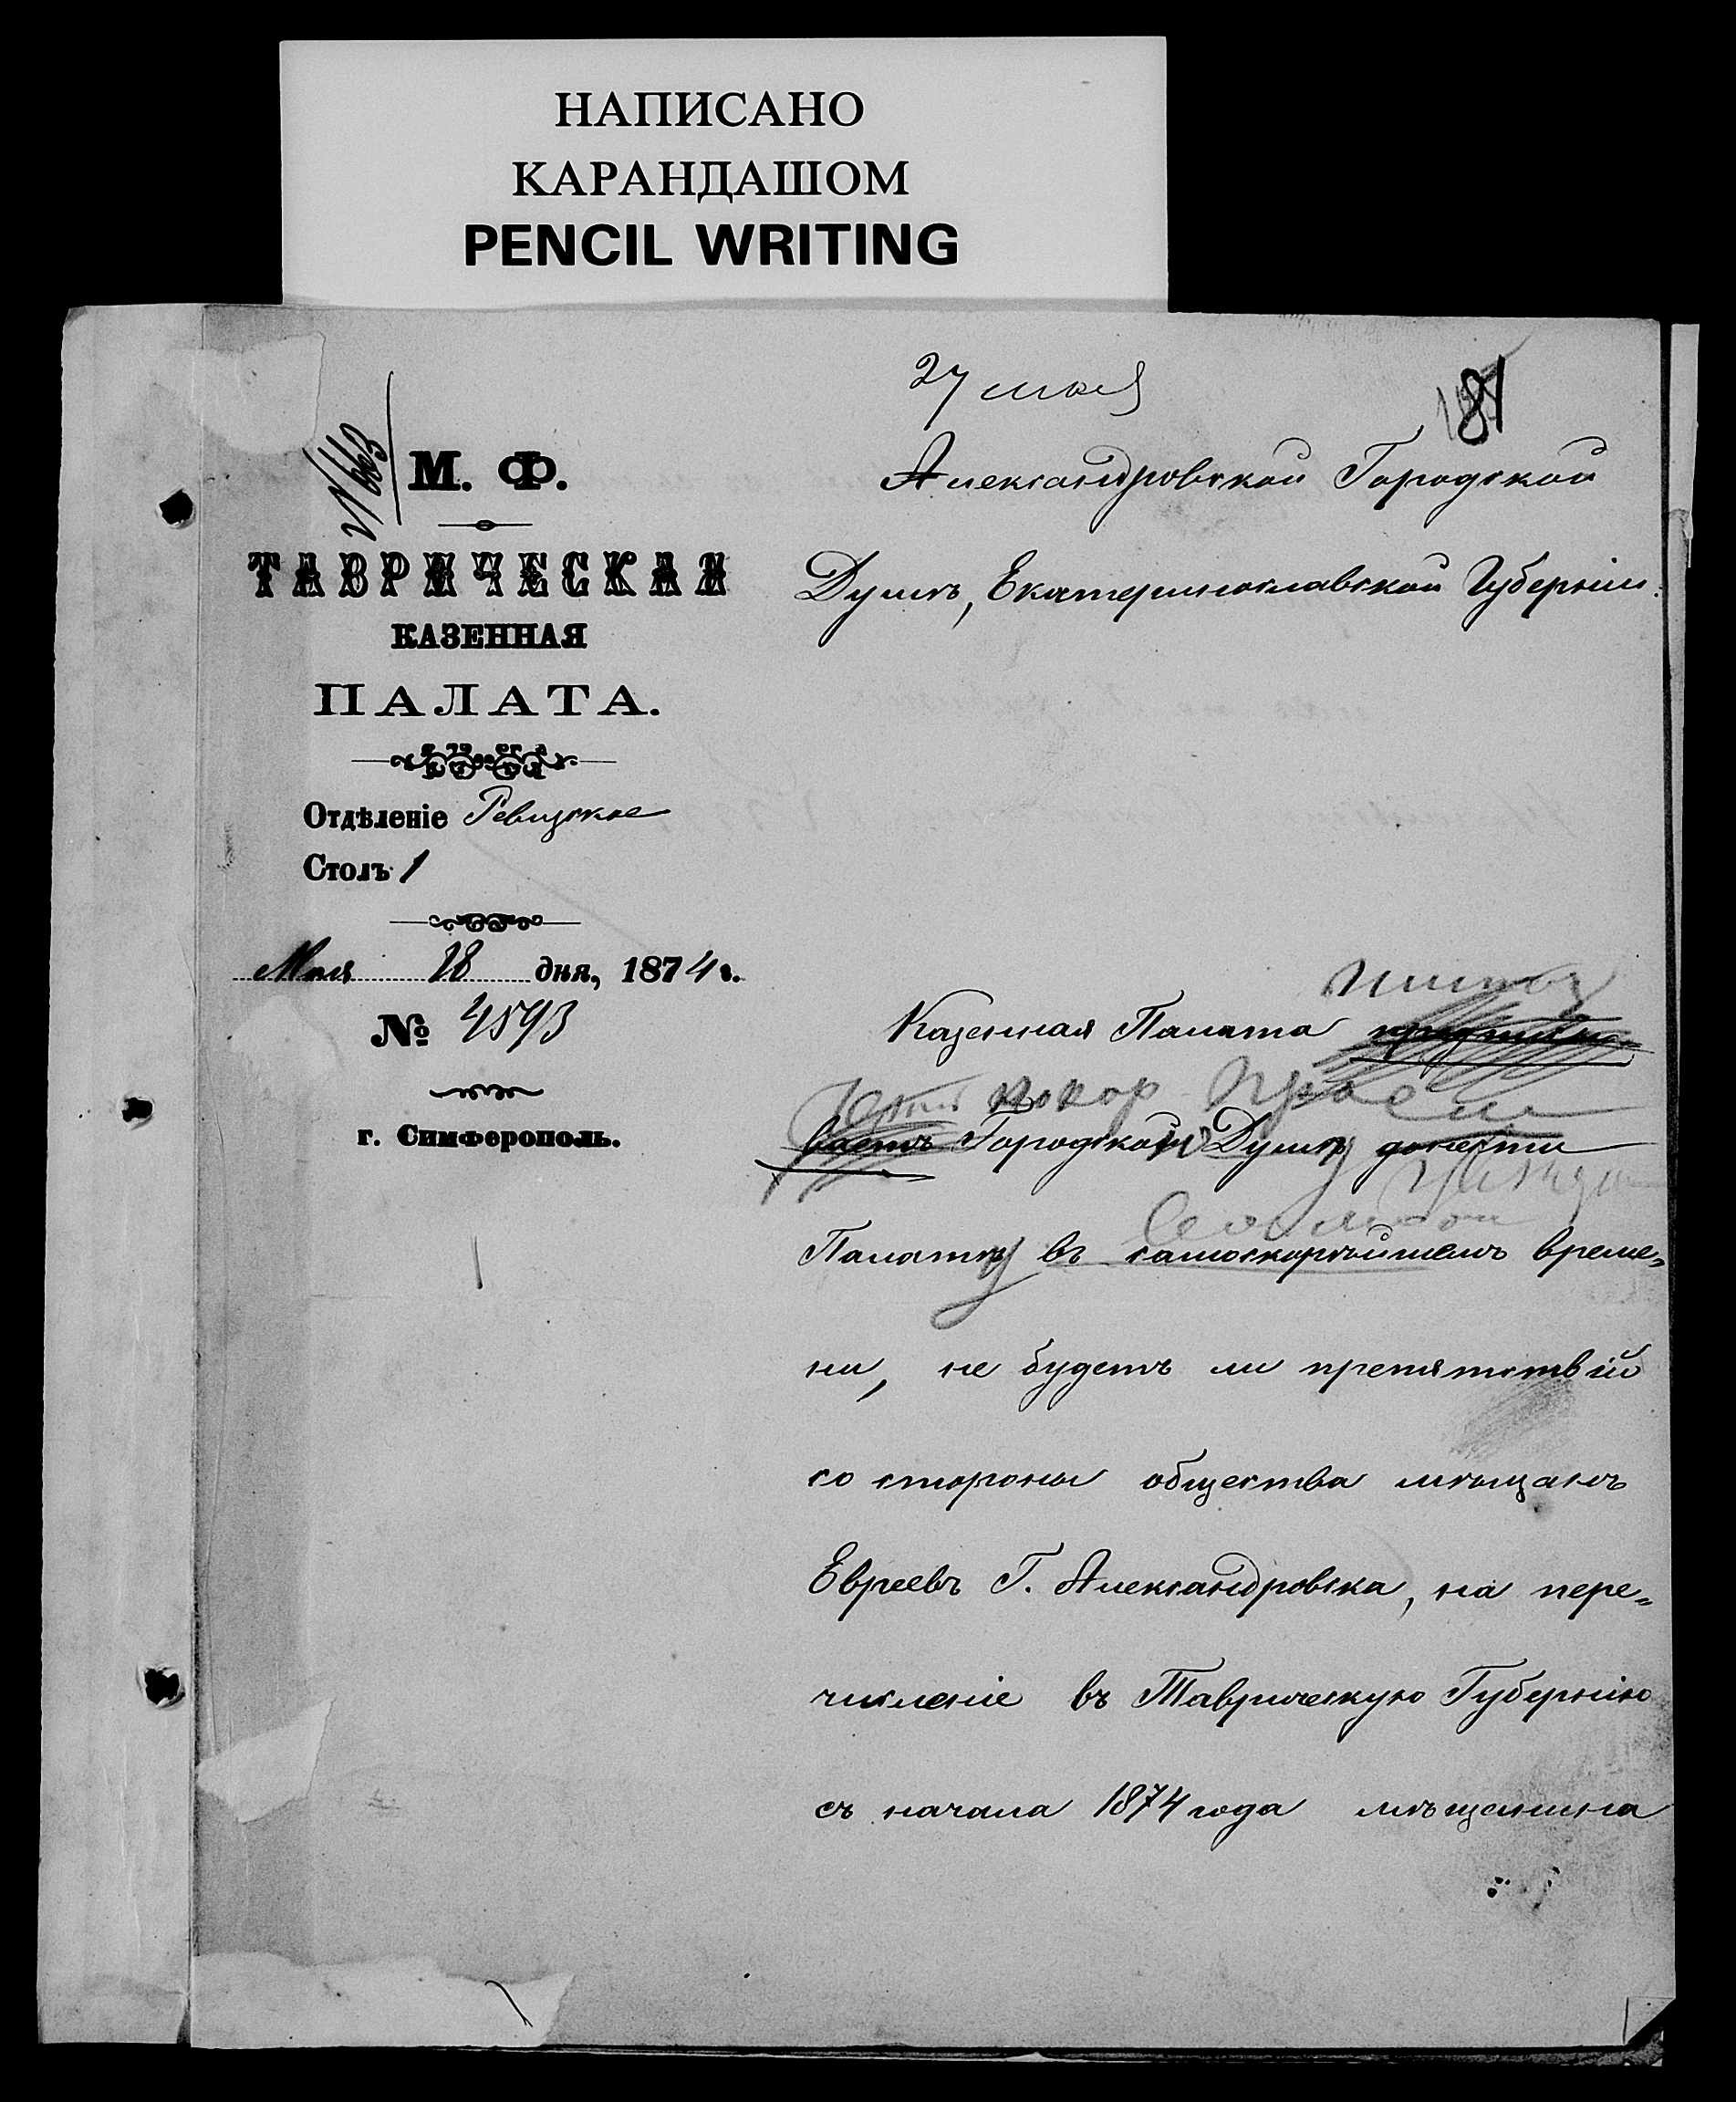 НАПИСАНО
КАРАНДАШОМ
PENCIL WRITING
27 мая
81
М. Ф.
ТАВРИЧЕСКАЯ
КАЗЕННАЯ
ПАЛАТА.
Отдѣленіе Ревизское
Столъ 1
Мая 18 дня, 1874 г.
№ 4593
г. Симферополь.
Александровской Городской
Думѣ, Екатеринославской Губерніи.
Казенная Палата
покор прося
ваетъ Городской Думѣ донести
Палатѣ въ самоскорѣйшемъ време„
ни, не будетъ ли препятствій
со стороны общества мѣщанъ
Евреевъ Г. Александровска, на пере„
численіе въ Таврическую Губернію
съ начала 1874 года мѣщанина